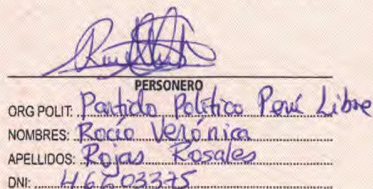 PERSONERO
ORG POLIT: Partido Político Perú Libre
NOMBRES: Rocío Verónica
APELLIDOS: Rojas Rosales
DNI: 46603375